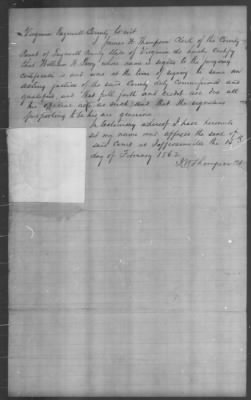 Virginia Tazewell County to wit
James H. Thompson Clerk of the County
Court of Tazewell County State of Virginia do hereby certify
that William H. Perry whose name is signed to the foregoing
certificate is and was at the time of signing the same an
acting justice of the said County duly commissioned and
qualified, and that full faith and credit are due all
his official acts as such, and that the signature
purporting to be his are genuine
In testimony whereof I have hereunto
set my name and affixed the seal of
said Court at Jeffersonville the
day of February 1862
Thompson